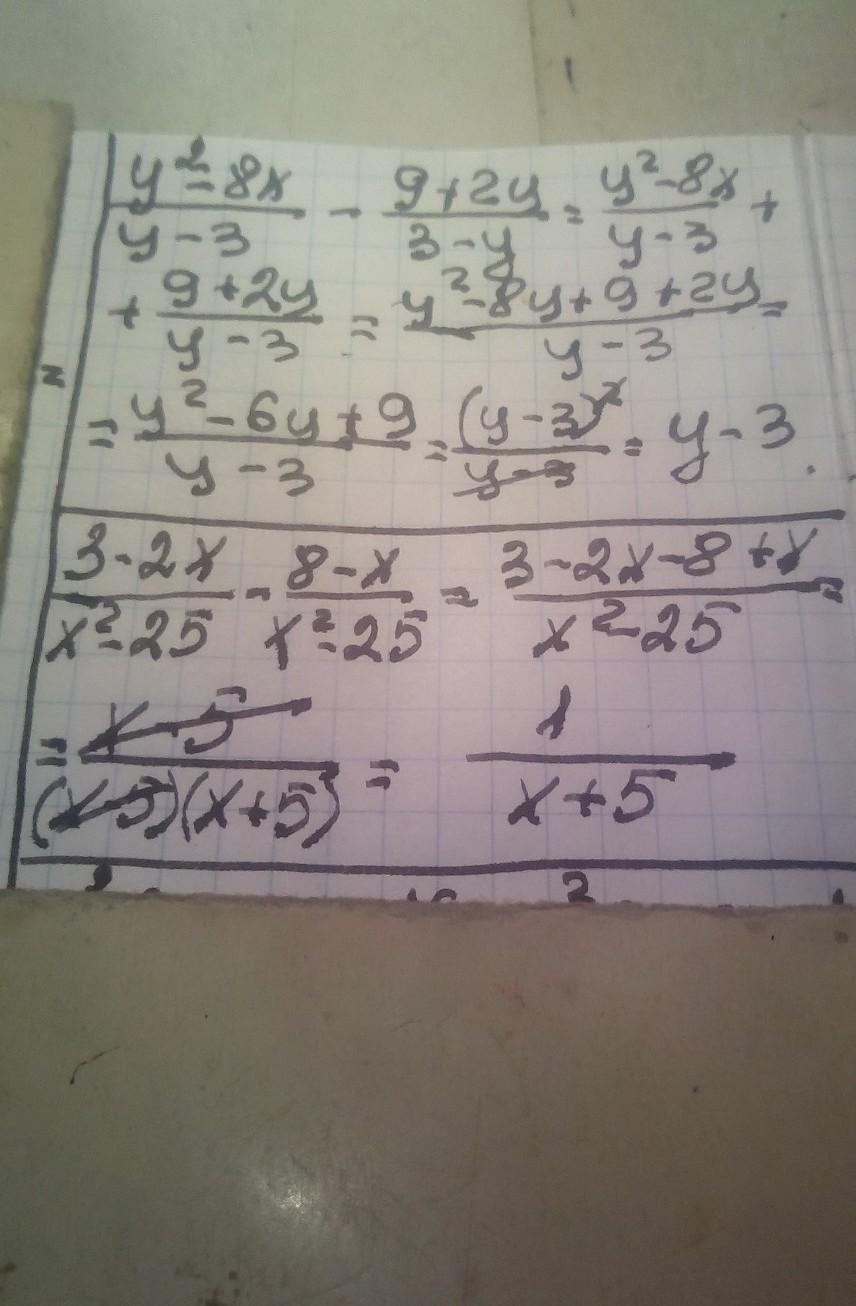 (y²-8x)/(y-3) - (9+2y)/(3-y) = (y²-8x)/(y-3) +
+ (9+2y)/(y-3) = (y²-8y+9+2y)/(y-3) =
= (y²-6y+9)/(y-3) = (y-3)²/(y-3) = y-3.
(3-2x)/(x²-25) - (8-x)/(x²-25) = (3-2x-8+x)/(x²-25) =
= (x-5)/((x-5)(x+5)) = 1/(x+5)